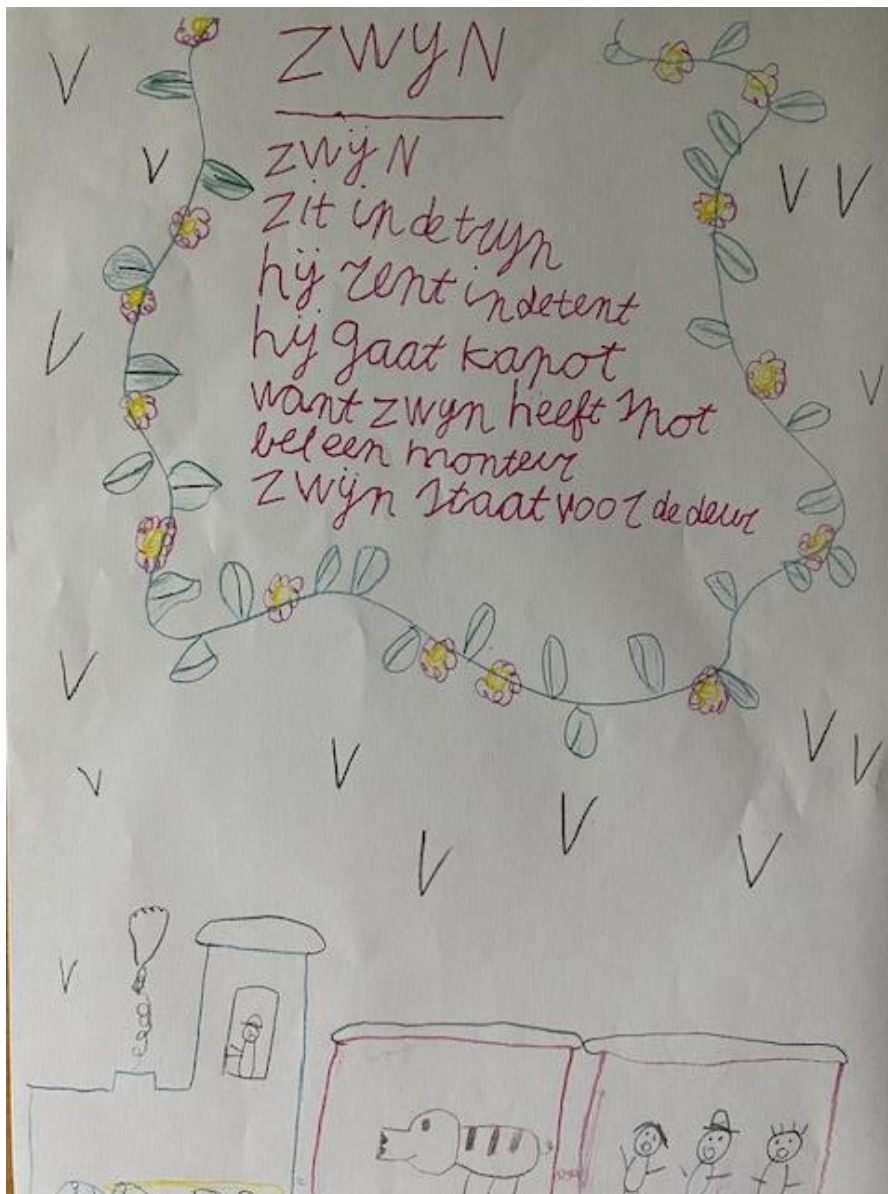 ZWYN
zwijN
zit in de tryn
hij rent in de tent
hij gaat kapot
want zwyn heeft snot
bel een monteur
zwijn staat voor de deur